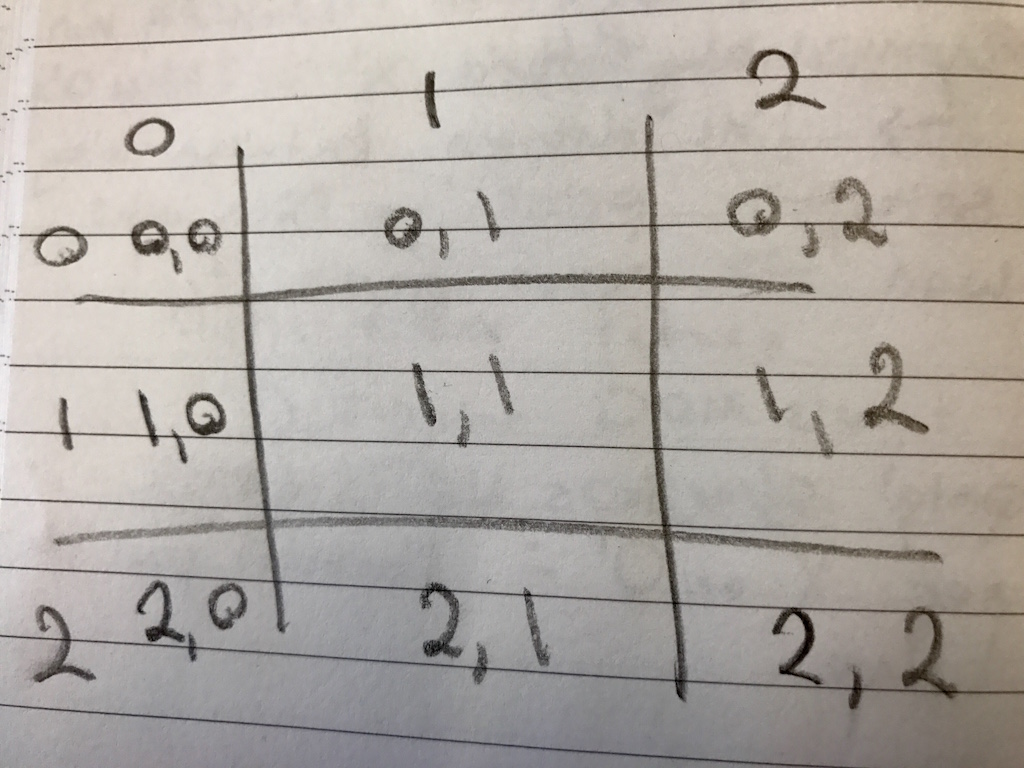 0 1 2
0 0,0 0,1 0,2
1 1,0 1,1 1,2
2 2,0 2,1 2,2